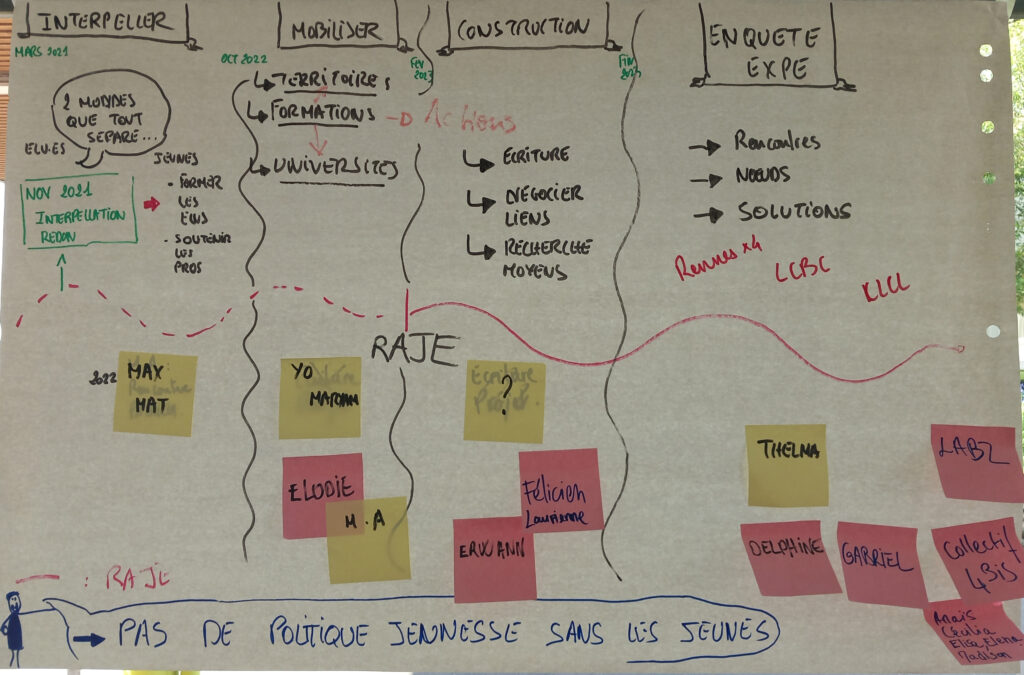 INTERPELLER
MARS 2021
2 MONDES
QUE TOUT
SEPARE...
ELU.ES
JEUNES
NOV 2021
INTERPELLATION
REDON
- FORMER
LES
ELUS
- SOUTENIR
LES
PROS
MOBILISER
OCT 2022
TERRITOIRES
FORMATIONS
Actions
UNIVERSITES
CONSTRUCTION
FEV
2023
ECRITURE
NEGOCIER
LIENS
RECHERCHE
MOYENS
ENQUETE
EXPE
FIN
2023
Rencontres
NOEUDS
SOLUTIONS
Rennes x4
LCBC
RAJE
2022
MAX
MAT
YO
ELODIE
M.A
Ecriture
Projet.
?
Félicien
Laurianne
ERWANN
THELMA
DELPHINE
GABRIEL
LABZ
Collectif
4Bis
Anaïs
Cécilia
Elisa, Elena
Madison
: RAJE
PAS DE POLITIQUE JENNESSE SANS LES JEUNES